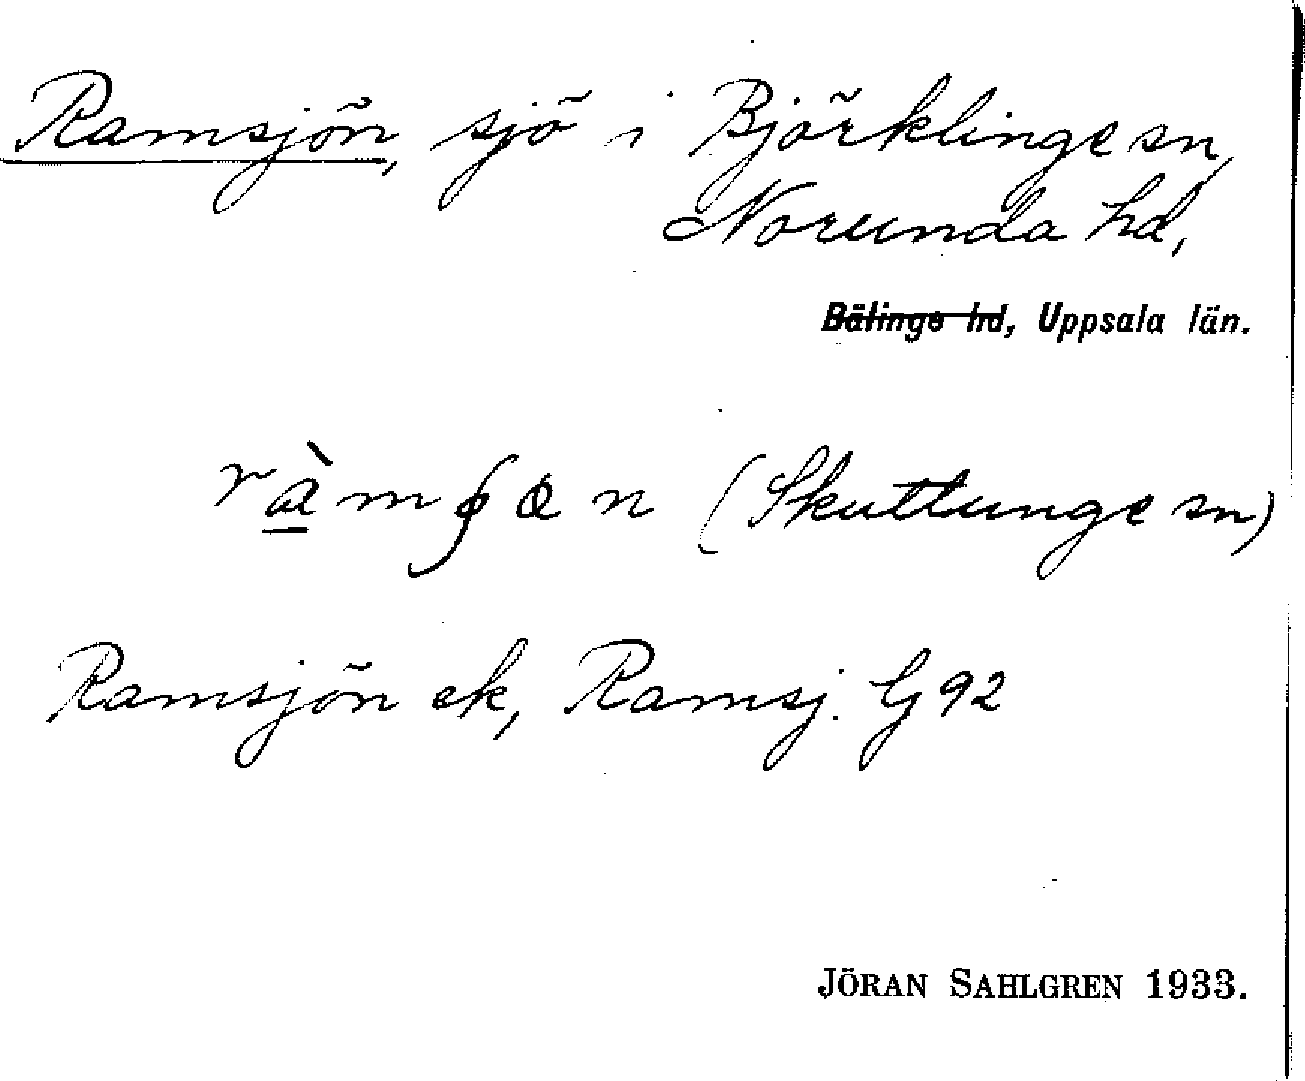 Ramsjön, sjö i Björklinge sn,
Norunda hd,
Bälinge hd, Uppsala län.
(Skuttunge sn)
Ramsjön ek, Ramsj. G 92
JÖRAN SAHLGREN 1933.